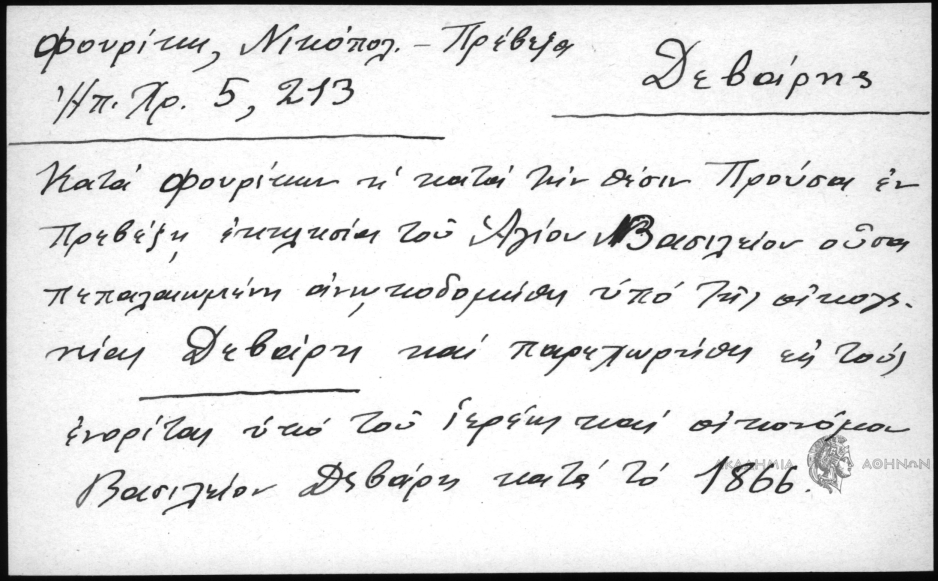 Φουρίκη, Νικόπολ. – Πρέβεζα
Ἠπ. Χρ. 5, 213
Δεβάρης
Κατά Φουρίκην ἡ κατά τήν θέσιν Προῦσα ἐν
Πρεβέζῃ ἐκκλησία τοῦ Ἁγίου Βασιλείου οὖσα
πεπαλαιωμένη ἀνῳκοδομήθη ὑπό τῆς οἰκογε-
νείας Δεβάρη καί παρεχωρήθη εἰς τούς
ἐνορίτας ὑπό τοῦ ἱερέως καί οἰκονόμου
Βασιλείου Δεβάρη κατά τό 1866.
ΑΚΑΔΗΜΙΑ ΑΘΗΝΩΝ